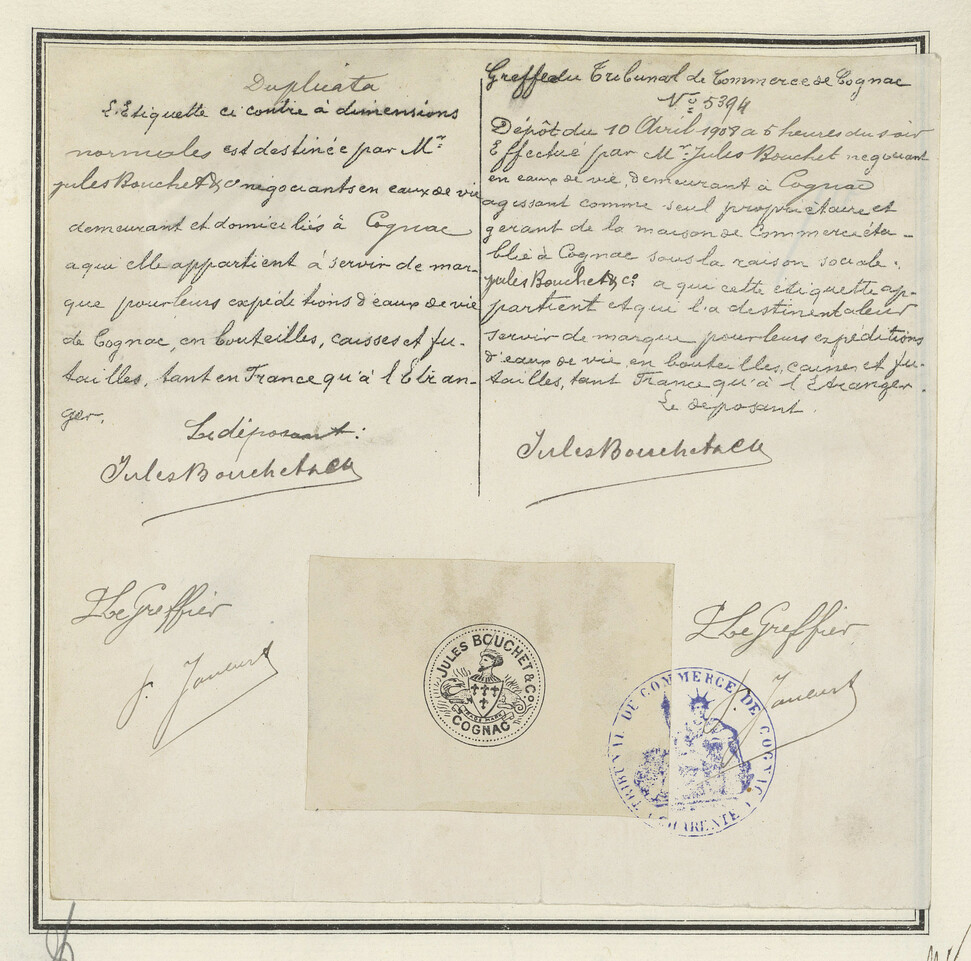 Duplicata
L'Etiquette ci contre à dimensions
normales est destinée par Mr
Jules Bouchet & Co négociants en eaux de vie
demeurant et domiciliés à Cognac
a qui elle appartient à servir de mar-
que pour leurs expéditions d'eaux de vie
de Cognac, en bouteilles, caisses et fu-
tailles, tant en France qu'à l'Etran-
ger.
Le déposant:
Jules Bouchet & Co
Greffe du Tribunal de Commerce de Cognac
No 5394
Dépôt du 10 Avril 1908 a 5 heures du soir
Effectué par Mr. Jules Bouchet negociant
en eaux de vie, demeurant à Cognac
agissant comme seul propriétaire et
gerant de la maison de Commerce éta-
blie à Cognac sous la raison sociale.
Jules Bouchet & Co a qui cette étiquette ap-
partient et qui l'a destinent a leur
servir de marque pour leurs expéditions
d'eaux de vie, en bouteilles, caisses et fu-
tailles, tant France qu'à l'Etranger.
Le déposant.
Jules Bouchet & Co
Le Greffier
Le Greffier
JULES BOUCHET & Co.
TRADE MARK
COGNAC
TRIBUNAL DE COMMERCE DE COGNAC
CHARENTE